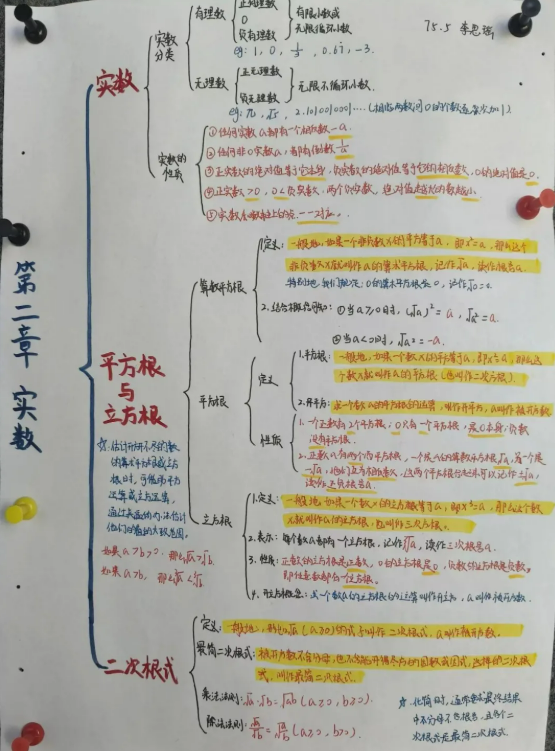 第二章 实数
实数
实数
分类
有理数
正有理数
0
负有理数
有限小数或
无限循环小数
eg: 1, 0, 1/3, 0.61, -3.
无理数
正无理数
负无理数
无限不循环小数.
eg: π, √5, 2.1010010001……(相邻两数间0的个数逐次加1).
75.5 李思瑶
实数的
性质
①任何实数a都有一个相反数-a.
②任何非0实数a,都有倒数1/a
③正实数的绝对值等于它本身,负实数的绝对值等于它的相反数,0的绝对值是0.
④正实数>0, 0<负实数,两个负实数,绝对值
⑤实数和数轴上的点一一对应.
平方根
与
立方根
算数平方根
定义:
一般地,如果一个非负数x的平方等于a,即x²=a,那么这个
非负数x就叫作a的算术平方根,记作√a,读作根号a.
特别地,我们规定:0的算术平方根是0,记作√0=0.
2.结合
①当a≥0时,(√a)²=a, √a²=a.
②当a<0时,√a²=-a.
平方根
定义
1.平方根:
一般地,如果一个数x的平方等于a,即x²=a,那么这
个数x就叫作a的平方根(也叫作二次方根).
2.开平方:
求一个数a的平方根的运算,叫作开平方,a叫作被开方数
性质
1.一个正数有2个平方根;0只有一个平方根,是0本身;负数
没有平方根.
2.正数a有两个平方根,一个是a的算数平方根√a,另一个是
-√a,它们互为相反数,这两个平方根合起来可以记作±√a,
读作正负根号a.
立方根
1.定义:
一般地,如果一个数x的立方等于a,即x³=a,那么这个数
x就叫作a的立方根,也叫作三次方根.
2.表示:每个数a都有一个立方根,记作∛a,读作三次根号a.
3.性质:正数的立方根是正数,0的立方根是0,负数的立方根是负数.
即任意数都有一个立方根.
4.开立方:求一个数a的立方根的运算叫作开立方,a叫作被开方数.
☆:估计
的算术平方根或立方
根时,可
运算或立方运算,
通过
他们的值的大致范围.
如果a>b>0,那么√a>√b.
如果a>b,那么∛a<∛b.
二次根式
定义:一般地,形如√a(a≥0)的式子叫作二次根式,a叫作被开方数.
最简二次根式:被开方数不含分母,也不含能开得尽方的因数或因式,这样的二次根
式,叫作最简二次根式.
乘法法则:√a·√b=√ab(a≥0,b≥0).
除法法则:√a/√b=√a/b(a≥0,b>0).
☆化简时,通常要求最终结果
中分母不含根号,且各个二
次根式是最简二次根式.